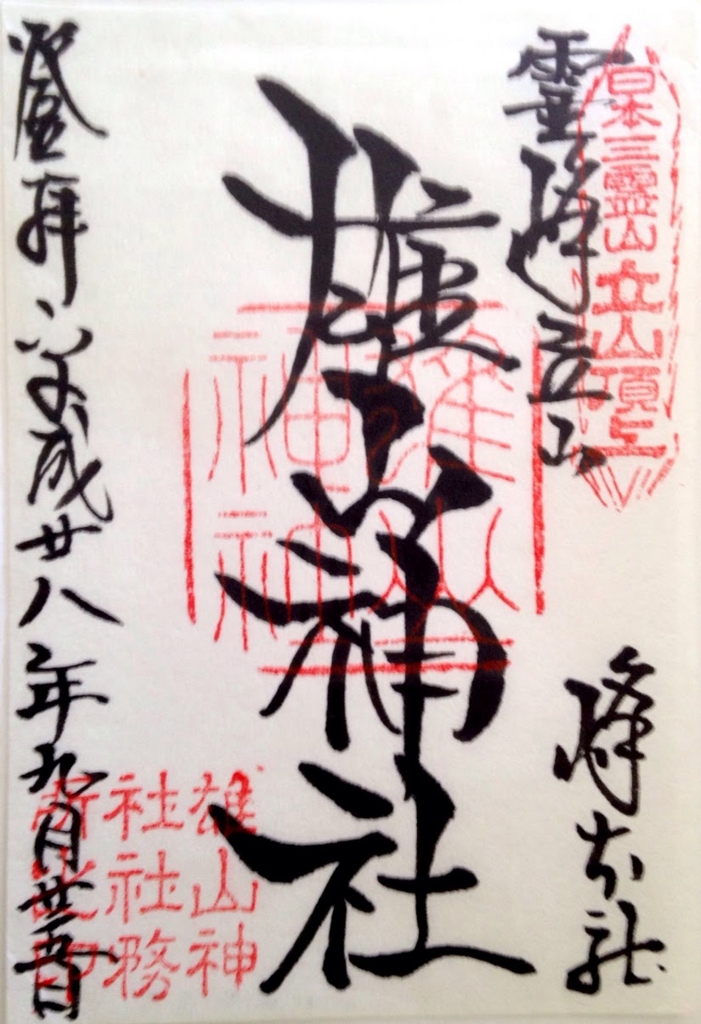 霊峰立山
日本三霊山立山頂上
峰本社
雄山神社
雄山
神神
登拝 平成廿八年九月廿五日
雄山神
社社務
所之印